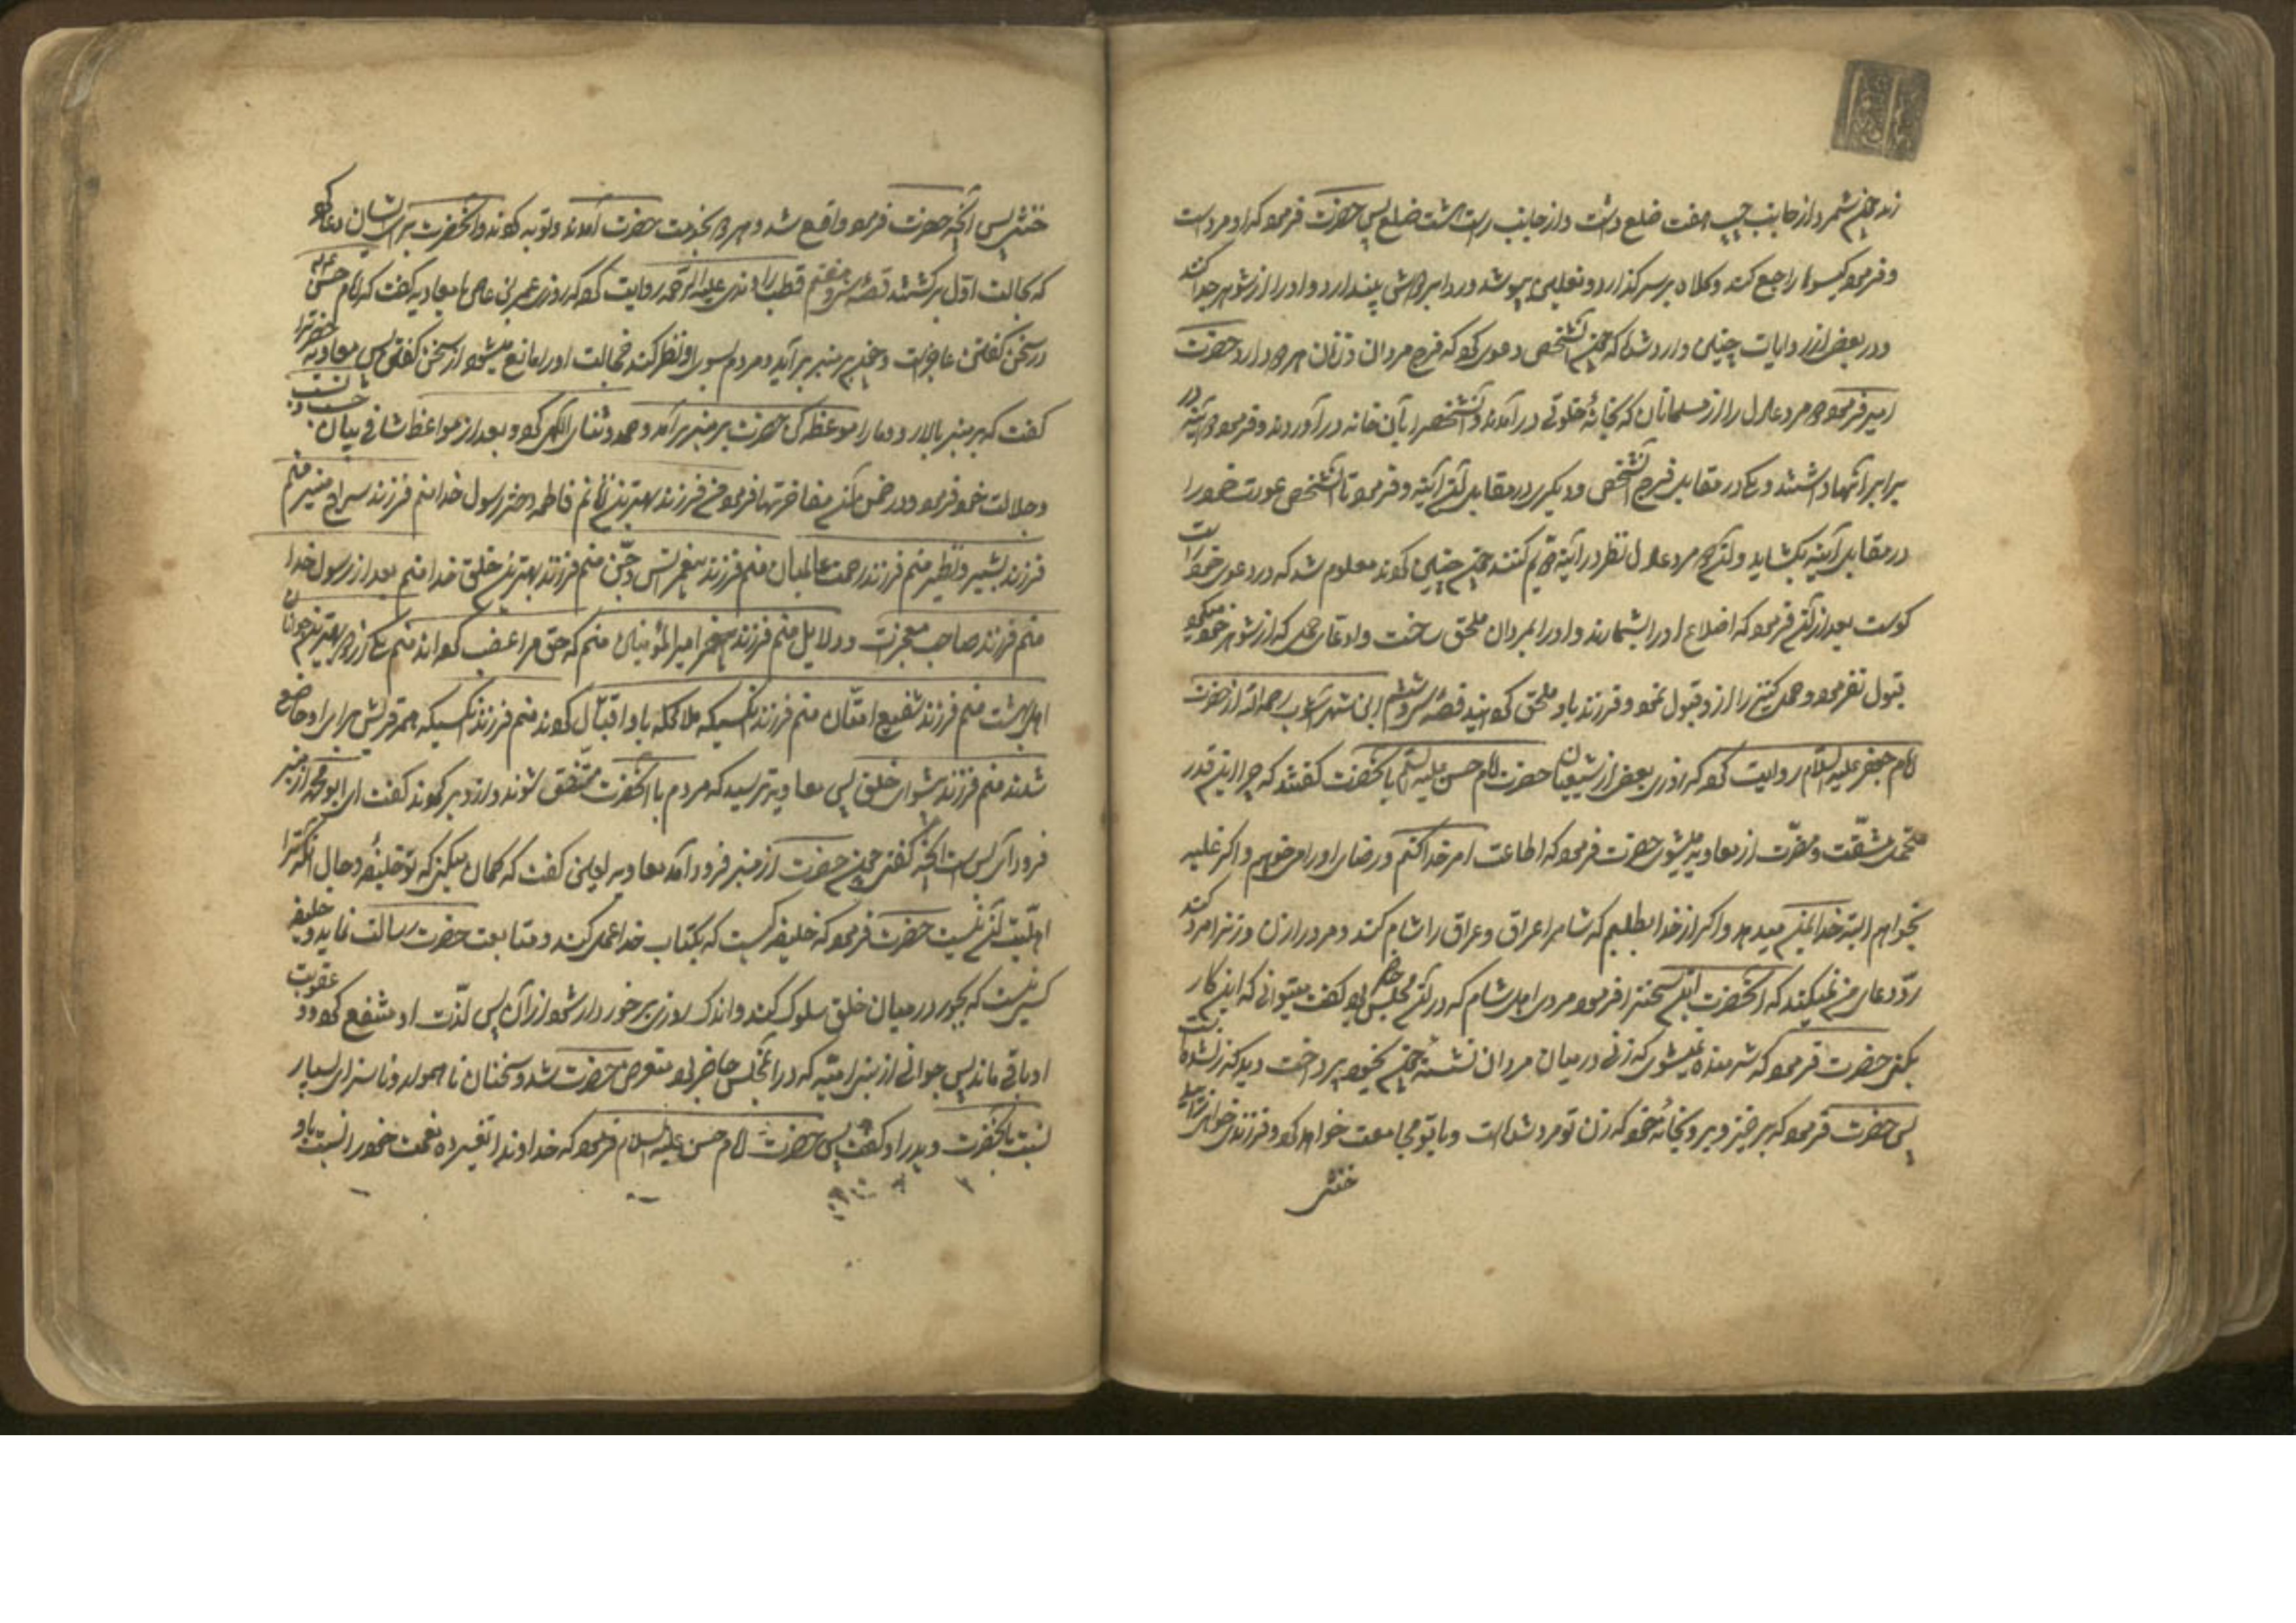 زن چون شمرد از جانب چپ هفت ضلع داشت و از جانب راست هشت ضلع پس حضرت فرمود که او مرد است
و فرمود گیسوها را جمع کند و کلاه بر سر گذارد و نعلین بپوشد و ردا بر دوش بیندازد و او را از شوهر جدا کند
و در بعضی از روایات چنین وارد شده که چون آنشخص دعوی کرد که فرج مردان و زنان هر دو دارد حضرت
امیر فرمود دو مرد عادل را از مسلمانان که بخانهٔ خلوتی در آمدند و آنشخص را بآن خانه در آوردند و فرمود دو آینه در
برابر آنها داشتند و یکی در مقابل فرج آنشخص و دیگری در مقابل آن آینه و فرمود تا آنشخص عورت خود را
در مقابل آینه بگشاید و آن دو مرد عادل نظر در آینه کنند چون چنین کردند معلوم شد که در دعوی خود راست
گوست بعد از آن فرمود که اضلاع او را بشمارند و او را بمردان ملحق ساخت و ادعای حمل که از شوهر خود میکرد
قبول نفرمود و حمل کنیز را از و قبول نمود و فرزند باو ملحق گردانید قصهٔ ابن شهرآشوب رحمه الله از حضرت
امام جعفر علیه السلام روایت کرده که روزی بعضی از شیعیان حضرت امام حسن علیه السلام بآنحضرت گفتند که چرا اینقدر
متحمل مشقت و مضرت از معاویه میشوی حضرت فرمود که اطاعت امر خدا کنم و رضای او را میخواهم و اگر غلبه
بخواهم البته خدا بمن میدهد و اگر از خدا بطلبم که شام را عراق و عراق را شام کند و مرد را زن و زن را مرد کند
رد دعای من نمیکند که آنحضرت این سخن را فرمود مردی اهل شام که در آن مجلس حاضر بود گفت میتوانی که این کار
بکنی حضرت فرمود که شرمنده نمیشوی که زنی در میان مردان نشسته چون بخود پرداخت دید که زن شده است
پس حضرت فرمود که برخیز و برو بخانهٔ خود که زن تو مرد شده است و با تو مجامعت خواهد کرد و فرزندی خواهی زایید
خنثی
خنثی پس آنچه حضرت فرمود واقع شد و هر دو بخدمت حضرت آمدند و توبه کردند و آنحضرت برای ایشان دعا کرد
که بحالت اول برگشتند قصهٔ قطب راوندی علیه الرحمه روایت کرده که روزی عمر بن عاص با معاویه گفت که امام حسن
در سخن گفتن عاجز است و چون بر منبر برآید و مردم بسوی او نظر کنند خجالت او را مانع میشود از سخن گفتن پس معاویه حضرت را
گفت که بر منبر بالا رو و ما را موعظه کن حضرت بر منبر برآمد و حمد و ثنای الهی کرد و بعد از مواعظ شافی بیان حسب و نسب
و جلالت خود فرمود و در ضمن آن مفاخرتها فرمود منم فرزند بهترین زنانم فاطمه دختر رسول خدا منم فرزند سراج منیر منم
فرزند بشیر و نذیر منم فرزند رحمت عالمیان منم فرزند پیغمبر انس و جن منم فرزند بهترین خلق خدا منم بعد از رسول خدا
منم فرزند صاحب معجزات و دلایل منم فرزند امیر المؤمنین منم که حق مرا غصب کرده‌اند منم یکی از دو بهترین جوانان
اهل بهشت منم فرزند شفیع امتان منم فرزند آنکسیکه ملائکه با او قتال کردند منم فرزند آنکسیکه همه قریش برای او خاضع
شدند منم فرزند پیشوای خلق پس معاویه ترسید که مردم با آنحضرت متفق شوند و ازو برگردند گفت ای ابو محمد از منبر
فرود آی بس است آنچه گفتی چون حضرت از منبر فرود آمد معاویه لعین گفت که گمان میکنی که تو خلیفهٔ و حال آنکه ترا
اهلیت آن نیست حضرت فرمود که خلیفه کسیست که بکتاب خدا عمل کند و متابعت حضرت رسالت نماید و خلیفه
کسی نیست که بجور در میان خلق سلوک کند و اندک روزی برخوردار شود از آن پس لذت او منقطع گردد و عقوبت
او باقی ماند پس جوانی از بنی امیه که در آنمجلس حاضر بود متعرض حضرت شد و سخنان ناهموار و ناسزای بسیار
نسبت بآنحضرت و پدر او گفت پس حضرت امام حسن علیه السلام فرمود که خداوندا تغییر ده نعمت خود را نسبت باو